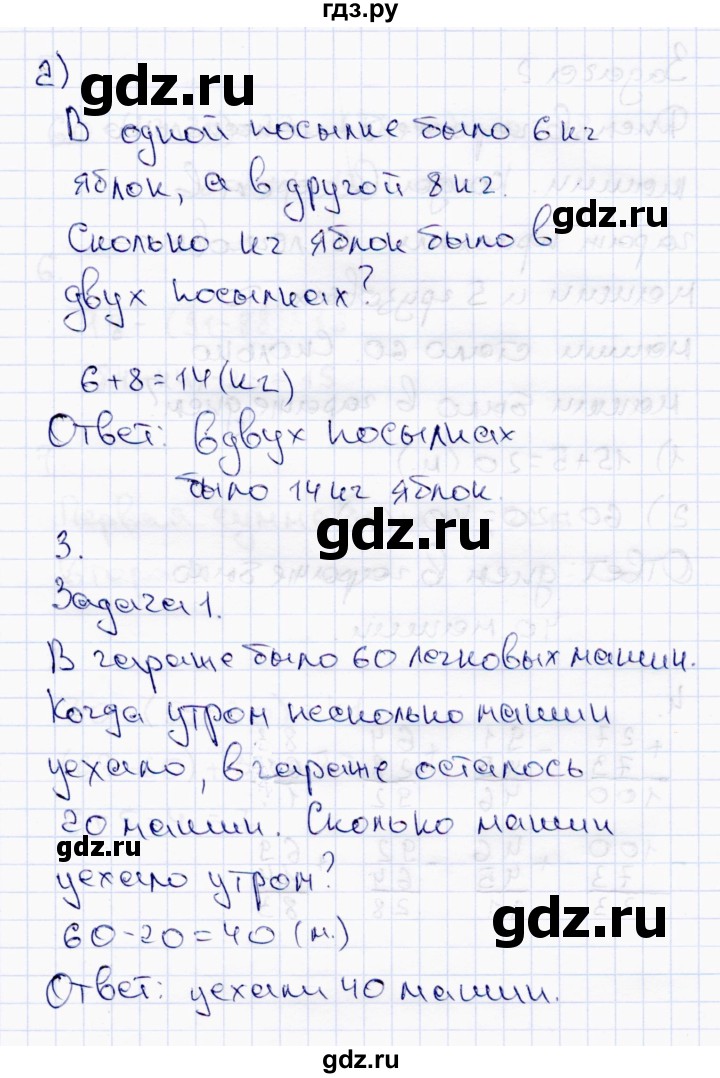 гдз.ру
2)
gdz.ru
В одной посылке было 6 кг
яблок, а в другой 8 кг.
gdz.ru
Сколько кг яблок было в
двух посылках?
6+8=14(кг)
Ответ: в двух посылках
было 14 кг яблок.
gdz.ru
3.
Задача 1.
В гараже было 60 легковых машин.
Когда утром несколько машин
уехало, в гараже осталось
20 машин. Сколько машин
gdz.ru
уехало утром?
gdz.ru
60-20=40 (м.)
Ответ: уехали 40 машин.
gdz.ru